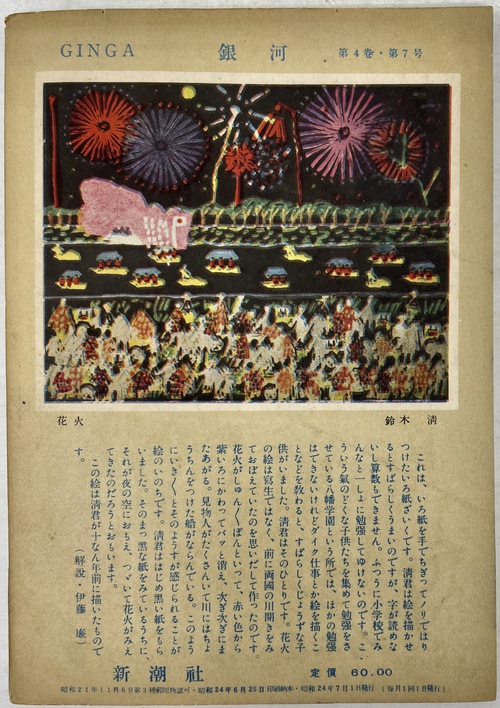 GINGA 銀河 第4巻・第7号
花火 鈴木 清
これは、いろ紙を手でちぎってノリではり
つけたいろ紙ざいくです。清君は絵を描かせ
るとすばらしくうまいのですが、字が読めな
いし算数もできません。ふつうに小学校でみ
んなと一しょに勉強してゆけないのです。こ
ういう氣のどくな子供たちを集めて勉強をさ
せている八幡学園という所では、ほかの勉強
はできないけれどダイク仕事とか絵を描くこ
となどを敎わると、すばらしくじょうずな子
供がいました。清君はそのひとりです。花火
の絵は寫生ではなく、前に両國の川開きをみ
ておぼえていたのを思いだして作ったのです。
花火がしゅんしゅんぽんといって、赤い色から
紫いろにかわってパッと消え、次ぎ次ぎにま
たあがる。見物人がたくさんいて川にはちょ
うちんをつけた船がならんでいる。このよう
にいき〱とそのようすが感じられることが
絵のいのちです。清君ははじめ黒い紙をもら
いました。そのまっ黒な紙をみているうちに、
それが夜の空におもえ、つゞいて花火がみえ
てきたのだろうとおもいます。
この絵は清君が十なん年前に描いたもので
す。
（解説・伊藤 廉）
新潮社 定價 60.00
昭和21年11月6日第3種郵便物認可・昭和24年6月25日印刷納本・昭和24年7月1日発行（毎月1回1日発行）